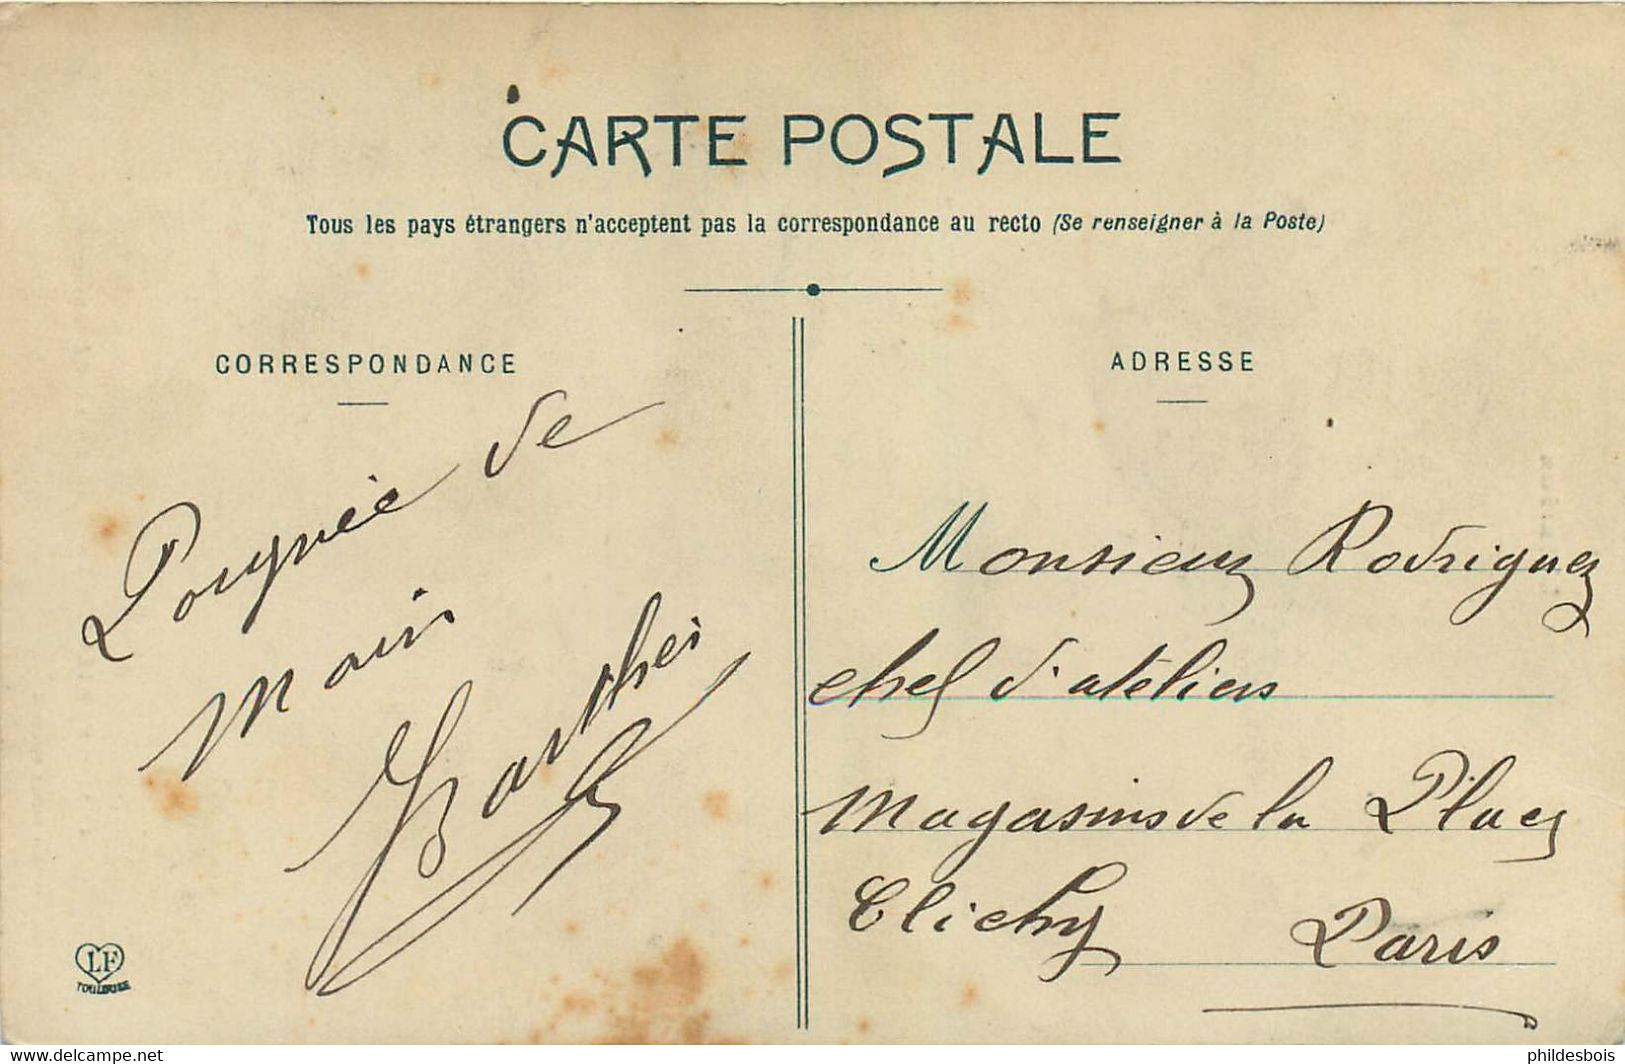 CARTE POSTALE
Tous les pays étrangers n'acceptent pas la correspondance au recto (Se renseigner à la Poste)
CORRESPONDANCE
Poignée de
main
ADRESSE
Monsieur Rodriguez
chef d'ateliers
Magasins de la Place
Clichy Paris
LF
TOULOUSE
www.delcampe.net
phildesbois